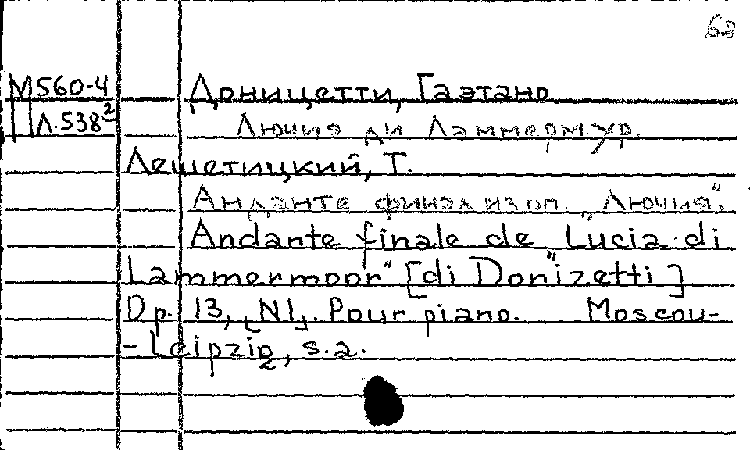 М560-4 Доницетти, Гаэтано
Л.538² Лючия ди Ламмермур.
Лешетицкий, Т.
Анданте финал из оп. "Лючия".
Andante finale de "Lucia di
Lammermoor" [di Donizetti]
Op. 13, [N1]. Pour piano. Moscou-
-Leipzig, s.a.